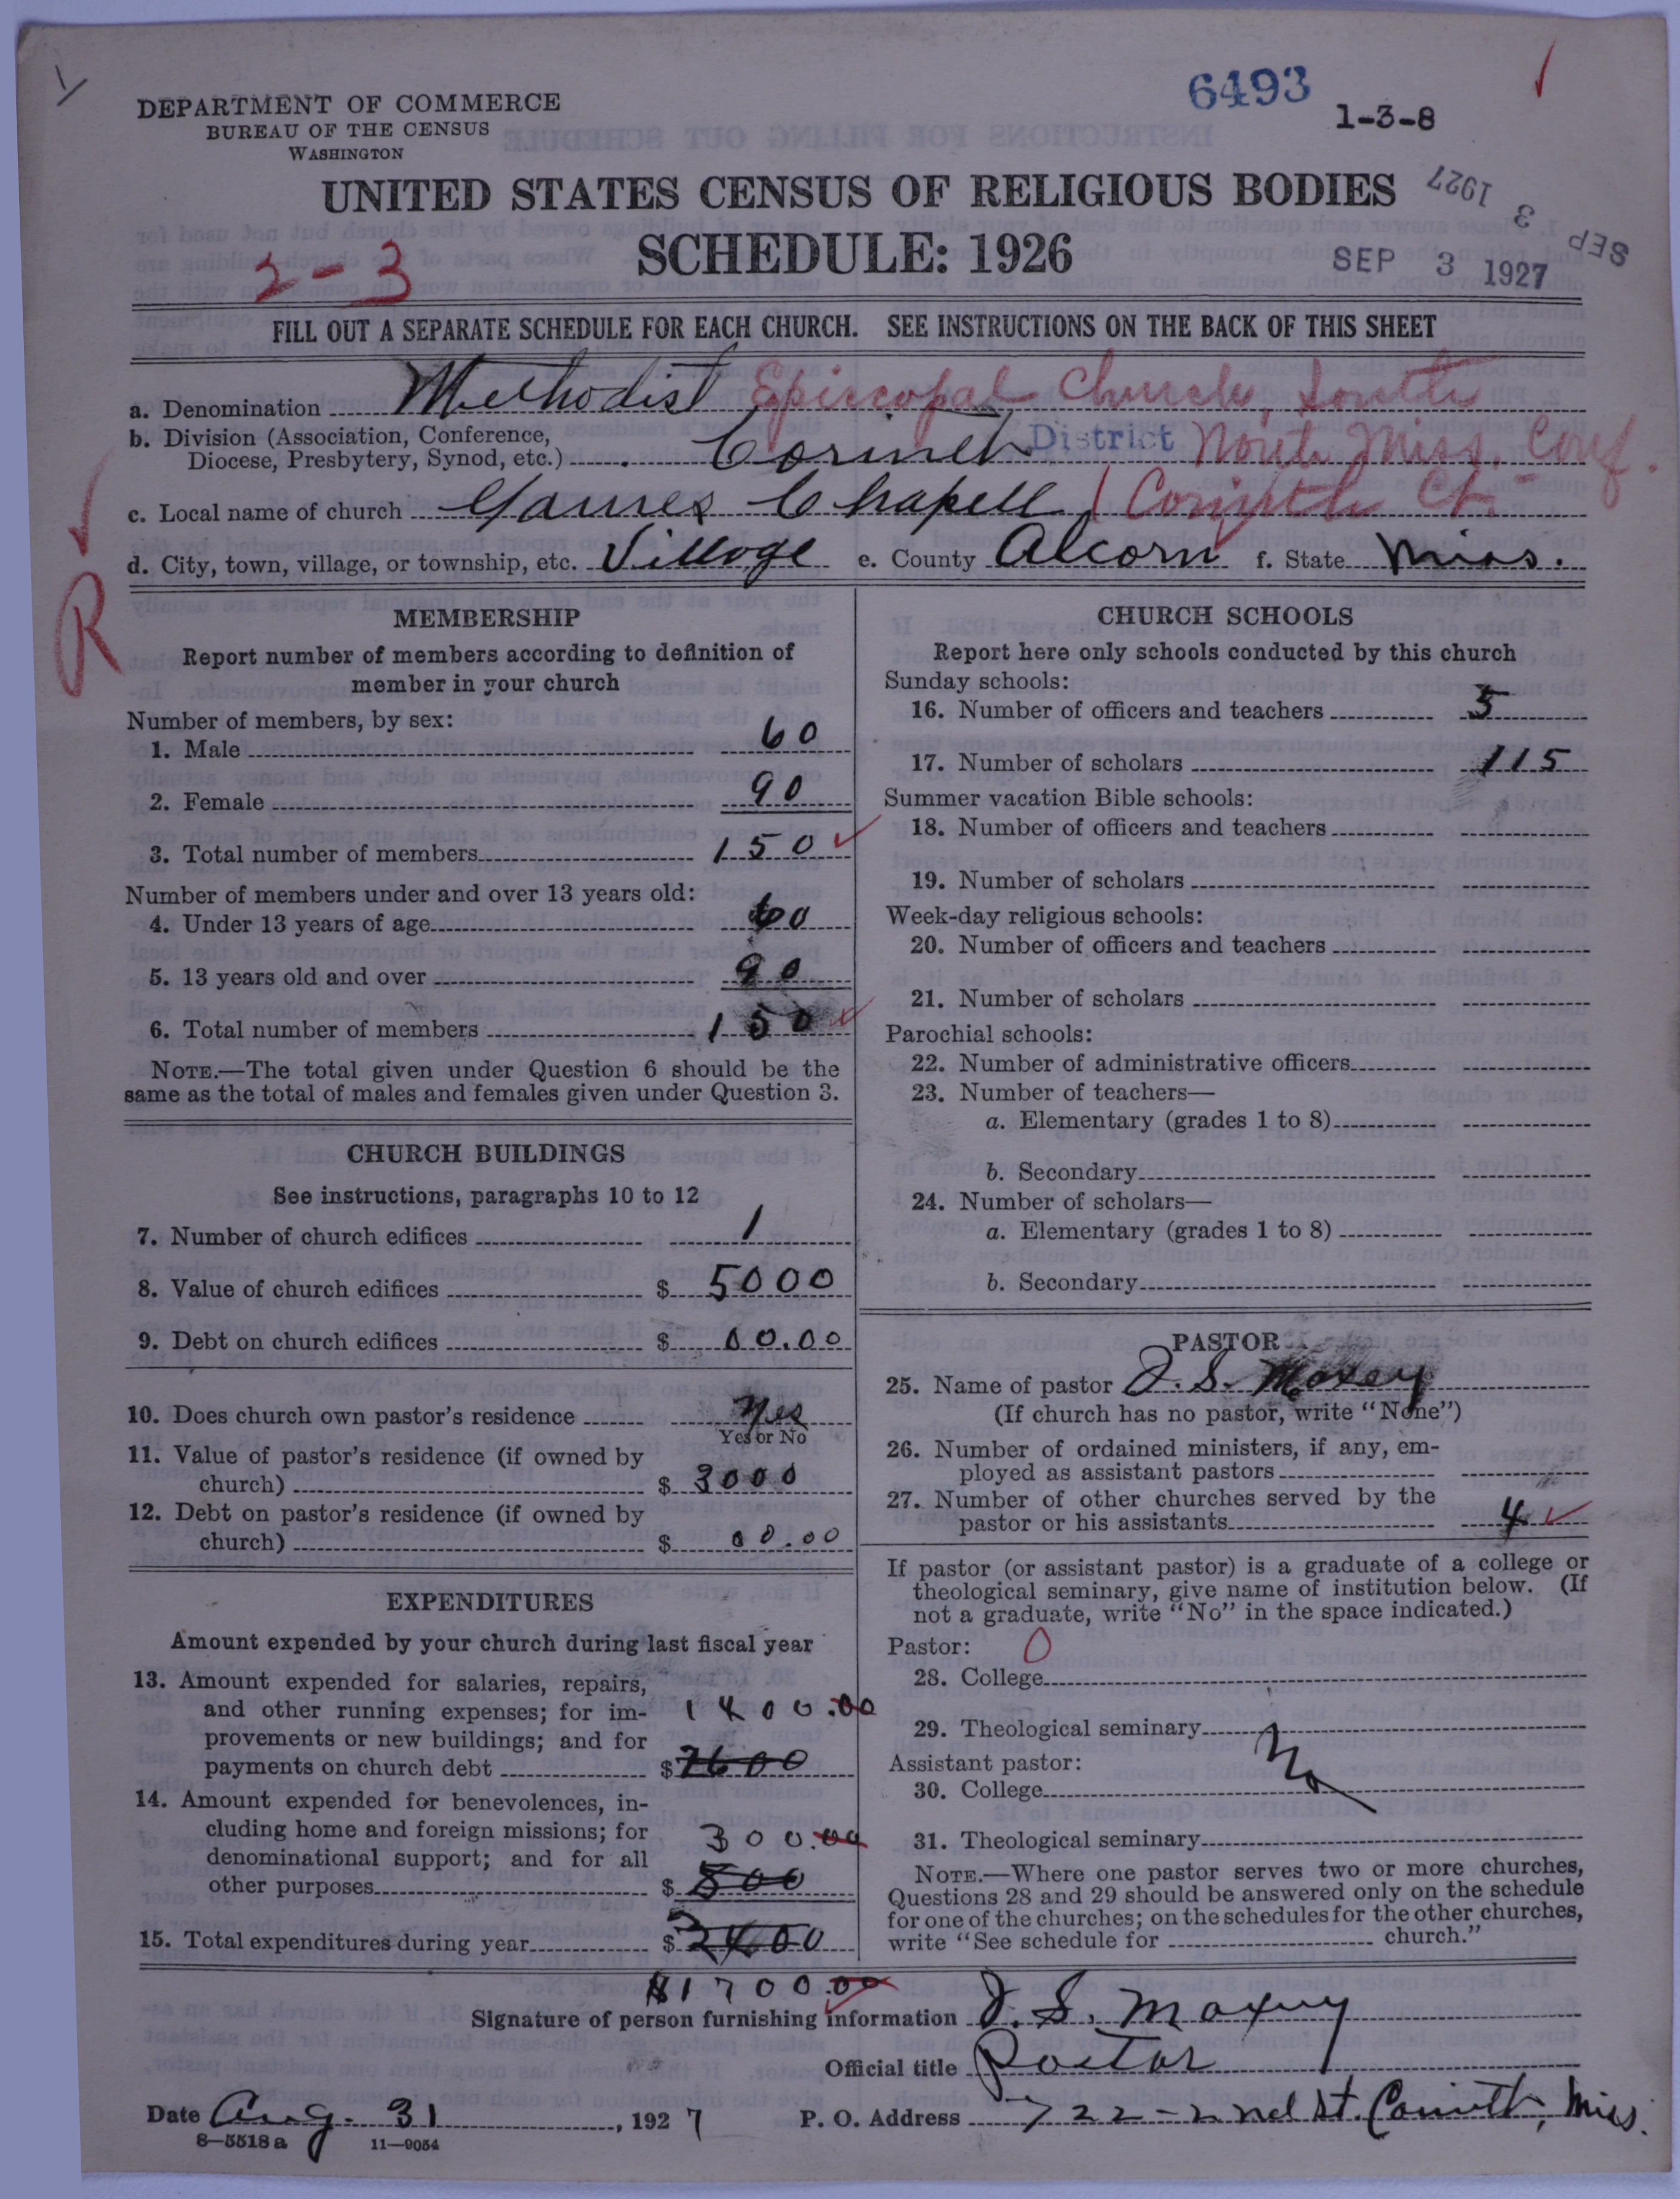 6493
1-3-8
DEPARTMENT OF COMMERCE
BUREAU OF THE CENSUS
WASHINGTON
UNITED STATES CENSUS OF RELIGIOUS BODIES
SEP 3 1927
SCHEDULE: 1926
2-3
SEP 3 1927
FILL OUT A SEPARATE SCHEDULE FOR EACH CHURCH. SEE INSTRUCTIONS ON THE BACK OF THIS SHEET
a. Denomination Methodist Episcopal Church, South
b. Division (Association, Conference,
Diocese, Presbytery, Synod, etc.) Corinth District North Miss. Conf.
c. Local name of church Gaines Chapell / Corinth Ct.
d. City, town, village, or township, etc. Village e. County Alcorn f. State Miss.
R
MEMBERSHIP
Report number of members according to definition of
member in your church
Number of members, by sex:
1. Male 60
2. Female 90
3. Total number of members 150
Number of members under and over 13 years old:
4. Under 13 years of age 60
5. 13 years old and over 90
6. Total number of members 150
NOTE.—The total given under Question 6 should be the
same as the total of males and females given under Question 3.
CHURCH BUILDINGS
See instructions, paragraphs 10 to 12
7. Number of church edifices 1
8. Value of church edifices $ 5000
9. Debt on church edifices $ 00.00
10. Does church own pastor's residence Yes
Yes or No
11. Value of pastor's residence (if owned by
church) $ 3000
12. Debt on pastor's residence (if owned by
church) $ 00.00
EXPENDITURES
Amount expended by your church during last fiscal year
13. Amount expended for salaries, repairs,
and other running expenses; for im- 1400.00
provements or new buildings; and for
payments on church debt $ 7600
14. Amount expended for benevolences, in-
cluding home and foreign missions; for 300.00
denominational support; and for all
other purposes $ 800
15. Total expenditures during year $ 2400
$1700.00
CHURCH SCHOOLS
Report here only schools conducted by this church
Sunday schools:
16. Number of officers and teachers 5
17. Number of scholars 115
Summer vacation Bible schools:
18. Number of officers and teachers
19. Number of scholars
Week-day religious schools:
20. Number of officers and teachers
21. Number of scholars
Parochial schools:
22. Number of administrative officers
23. Number of teachers—
a. Elementary (grades 1 to 8)
b. Secondary
24. Number of scholars—
a. Elementary (grades 1 to 8)
b. Secondary
PASTOR
25. Name of pastor J. S. Maxey
(If church has no pastor, write "None")
26. Number of ordained ministers, if any, em-
ployed as assistant pastors
27. Number of other churches served by the
pastor or his assistants 4
If pastor (or assistant pastor) is a graduate of a college or
theological seminary, give name of institution below. (If
not a graduate, write "No" in the space indicated.)
Pastor: 0
28. College
29. Theological seminary
No
Assistant pastor:
30. College
31. Theological seminary
NOTE.—Where one pastor serves two or more churches,
Questions 28 and 29 should be answered only on the schedule
for one of the churches; on the schedules for the other churches,
write "See schedule for church."
Signature of person furnishing information J. S. Maxey
Official title Pastor
Date Aug. 31, 1927 P. O. Address 722-2nd St. Corinth, Miss.
8—5518a 11—9054